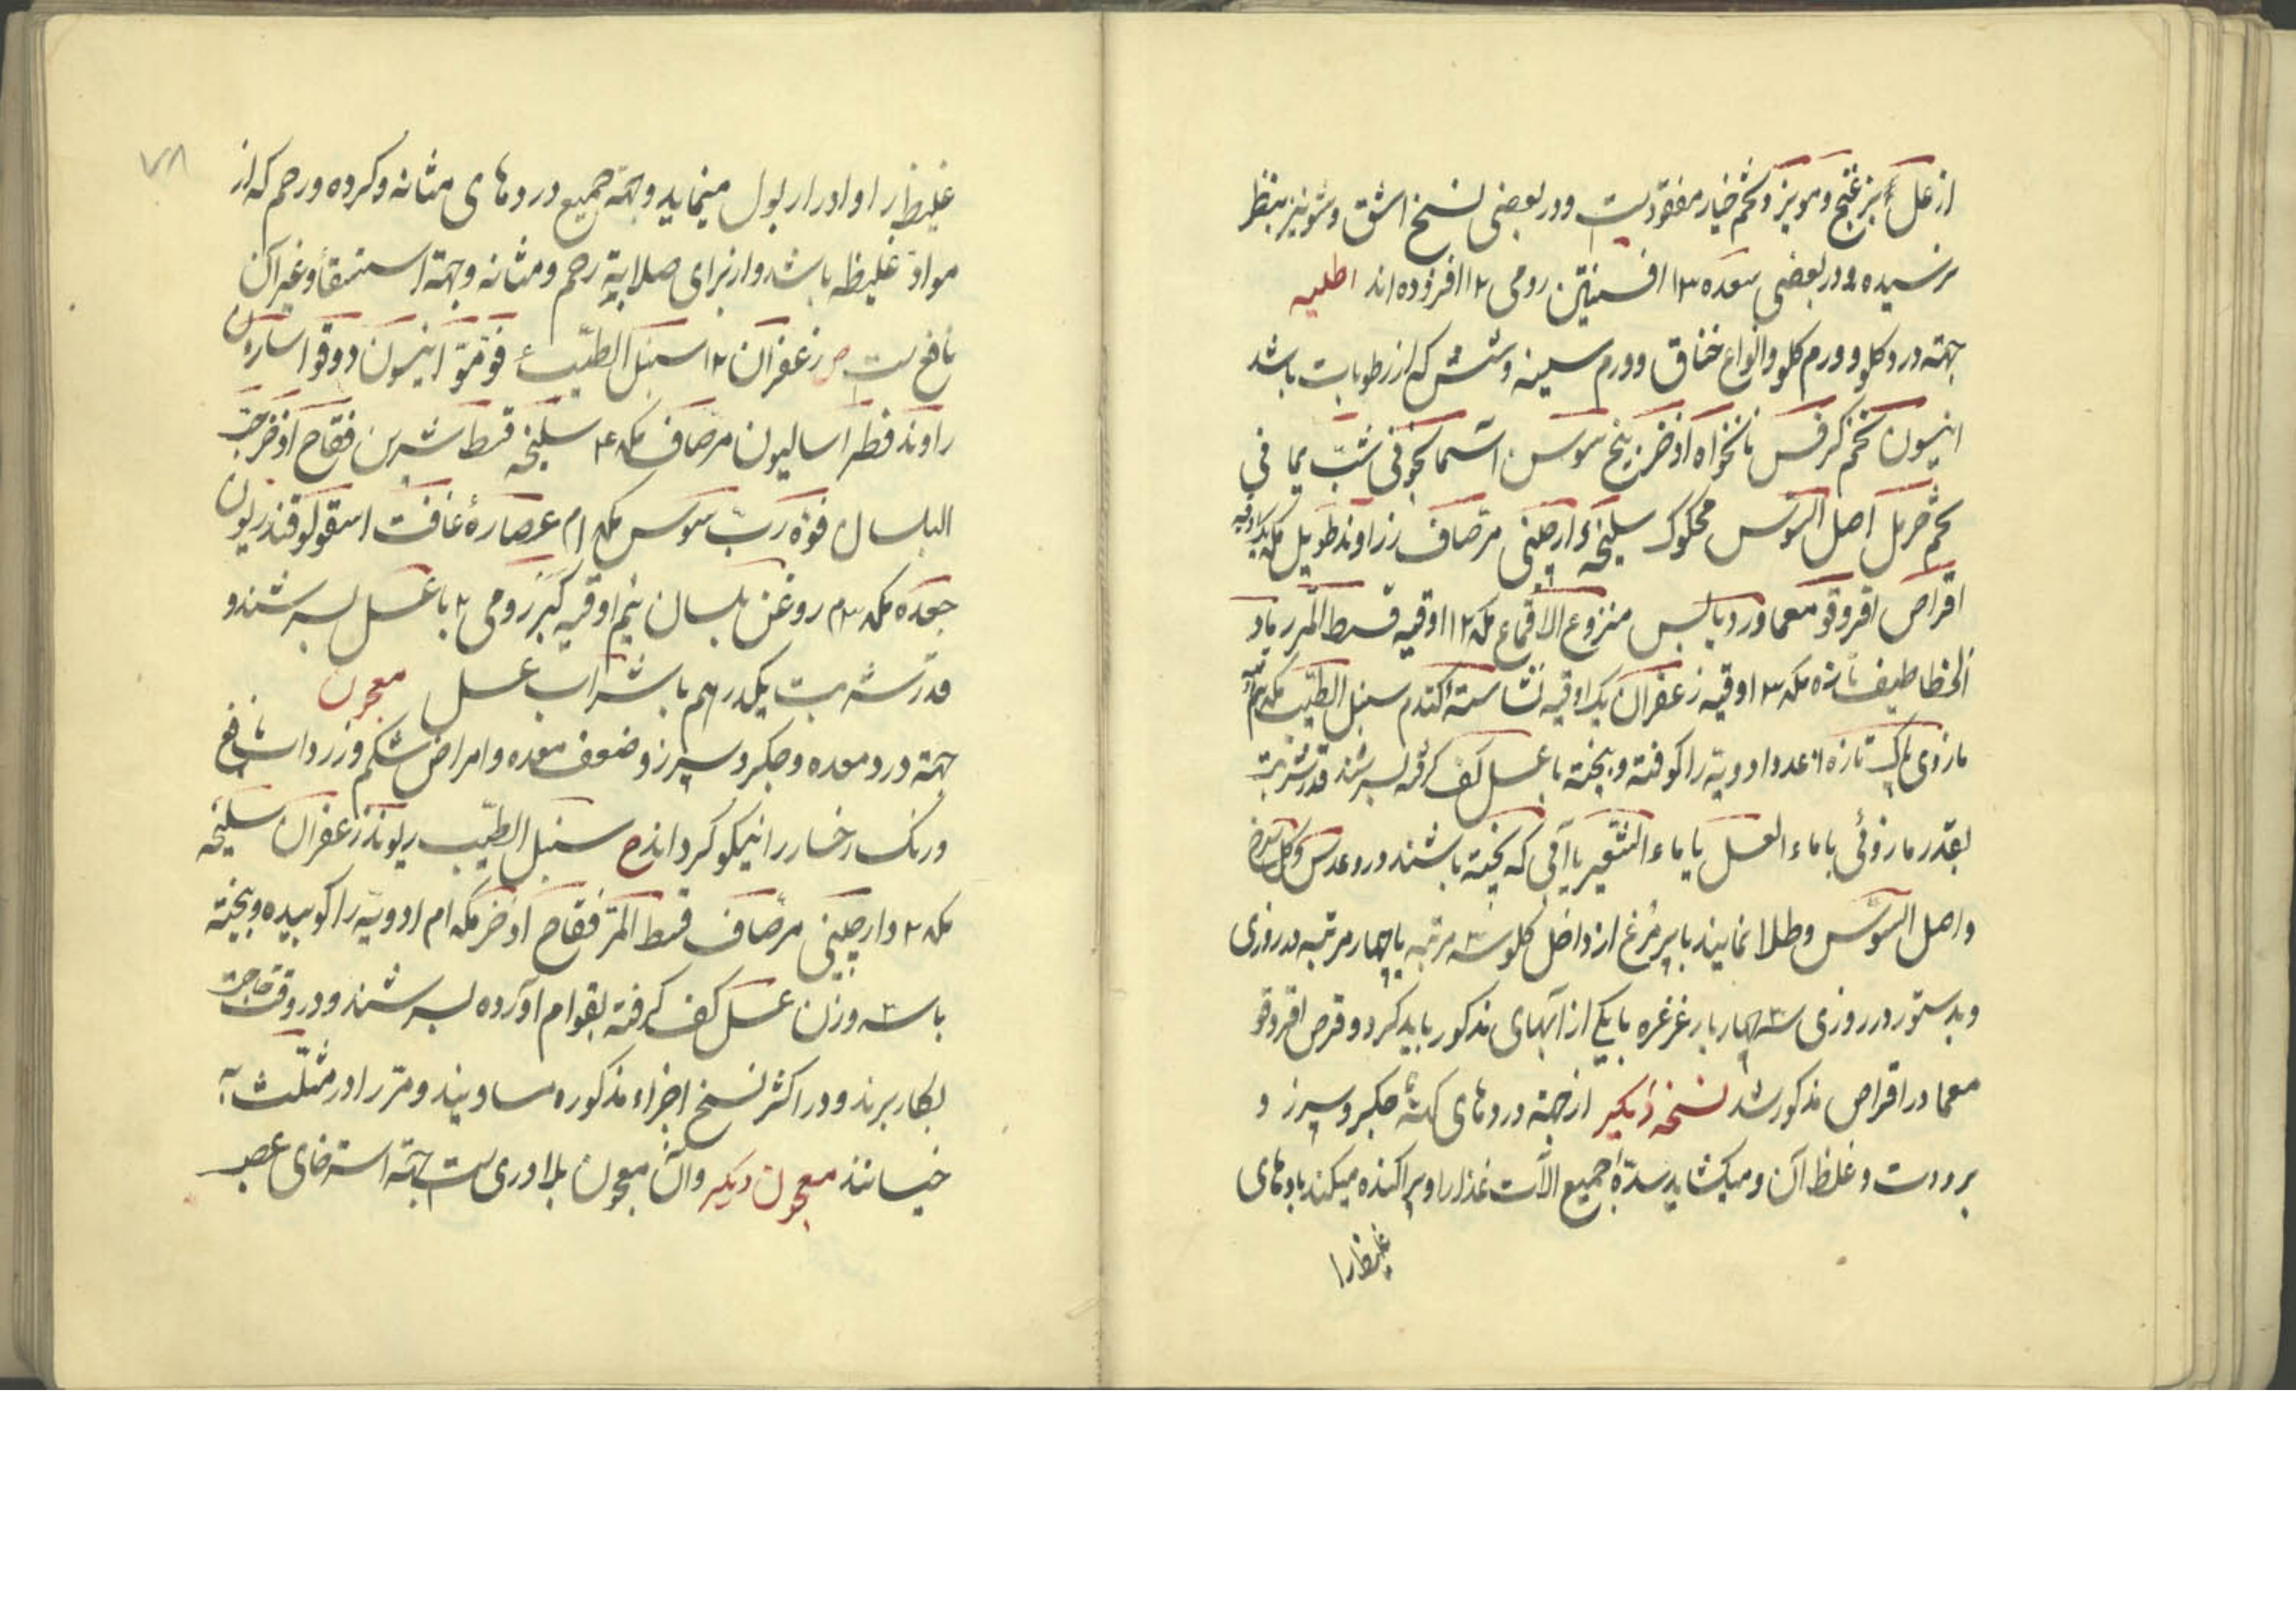 از علک بزغنج و مویز و تخم خیار مفقودست و در بعضی نسخ اشق و شونیز بنظر
نرسیده و در بعضی سعده ۱۳ افسنتین رومی ۱۲ افزوده اند اطلیه
جهته درد کلو و ورم کلو و انواع خناق و ورم سینه و شش که از رطوبات باشد
انیسون تخم کرفس نانخواه اذخر بیخ سوسن آسمانجونی شبّ یمانی
تخم حرمل اصل السوس محکوک سلیخه دارچینی مرّصاف زراوند طویل مکد
اقراص اقروقو معما ورد یابس منزوع الاقماع مکد ۱۲ اوقیه قسط المر رماد
الخطاطیف تازه مکد ۳ اوقیه زعفران یک اوقیه نشاسته کندم سنبل الطیب مکد
مازوی تازه ۶ عدد ادویه را کوفته و بیخته با عسل کف کرفته بسرشند قدر شربت
بقدر مازوئی با ماء العسل یا ماء الشعیر یا آبی که پخته باشند در و عدس و کل سرخ
و اصل السوس و طلا نمایند با پر مرغ از داخل کلو سه مرتبه یا چهار مرتبه در روزی
و بدستور در روزی سه چهار بار غرغره با یکی از آبهای مذکور باید کرد و قرص اقروقو
معما در اقراص مذکور شد نسخه دیکر از جهته دردهای کهنه جکر و سپرز و
برودت و غلظ آن و میکشاید سدّهٔ جمیع الآت غذا را و پراکنده میکند بادهای
غلیظ را
۷۸
غلیظ را و ادرار بول مینماید و جهته جمیع دردهای مثانه و کرده و رحم که از
موادّ غلیظه باشد و از برای صلابة رحم و مثانه و جهته استسقاء و غیر آن
نافع است ص زعفران ۱۲ سنبل الطیّب ع فو مو انیسون دوقو اسارون
راوند فطراسالیون مرّصاف مکد ۴ سلیخه قسط شیرین فقاح اذخر حب
البلسان فوّه ربّ سوس مکد ام عصارهٔ غافت اسقولوقندریون
جعده مکد ۳م روغن بلسان نیم اوقیه کبر رومی ۲ با عسل بسرشند و
قدر شربت یکدرهم با شراب عسل معجون
جهته درد معده و جکر و سپرز و ضعف معده و امراض شکم و زرداب نافع
و رنک رخسار را نیکو کرداند ص سنبل الطیّب ریوند زعفران سلیخه
مکد ۲ دارچینی مرّصاف قسط المرّ فقاح اذخر مکد ام ادویّه را کوبیده و بیخته
با سه وزن عسل کف کرفته بقوام آورده بسرشند و در وقت حاجت
بکار برند و در اکثر نسخ اجزاء مذکوره مساویند و مرّ را در مثلّث
خیسانند معجون دیکر و آن معجون بلادری است جهته استرخای عصب